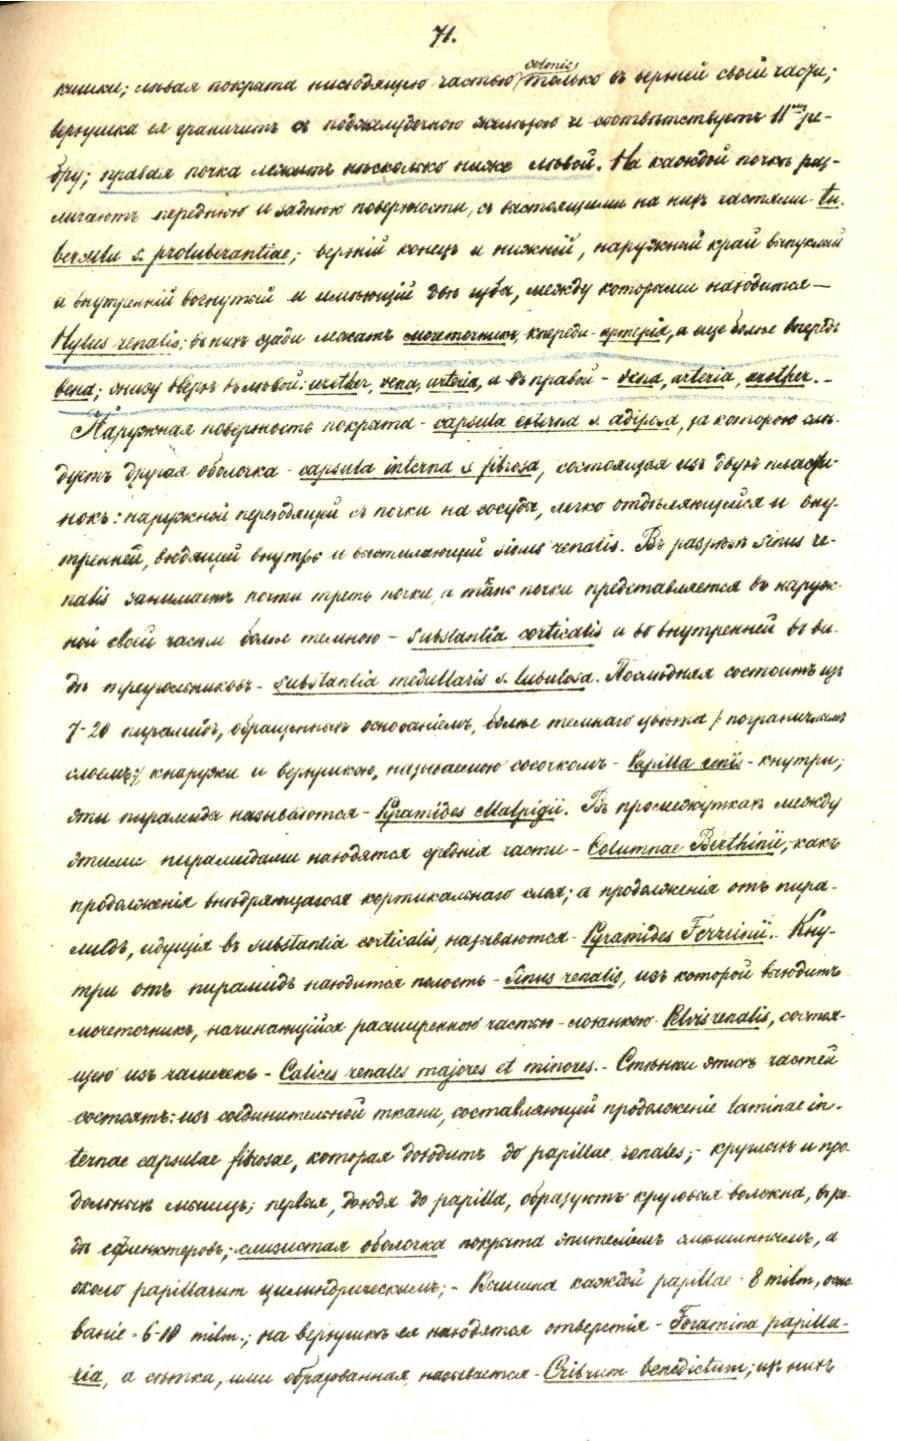 71.
кишки; лѣвая пократа нисходящую частью colonic, только въ верхней своей части;
верхушка ея граничитъ съ поджелудочною желѣзою и соотвѣтствуетъ 11му ре-
бру; правая почка лежитъ нѣсколько ниже лѣвой. На каждой почкѣ раз-
личаютъ переднюю и заднюю поверхности, съ выстоящими на нихъ частями tu.
bercula s. protuberantiae; верхній конецъ и нижній, наружный край выпуклый
и внутренній вогнутый и имѣющій двѣ губы, между которыми находится —
Hylus renalis; въ нихъ сзади лежатъ мочеточникъ, кпереди - артерія, а еще болѣе впередъ
вена; снизу вверхъ въ лѣвой: urether, vena, arteria, и въ правой - vena, arteria, urether. -
Наружная поверхность пократа - capsula externa s. adiposa, за которою слѣ-
дуетъ другая оболочка - capsula interna s fibrosa, состоящая изъ двухъ пласти-
нокъ: наружной переходящей съ почки на сосуды, легко отдѣляющейся и вну-
тренней, входящей внутрь и выстилающей sinus renalis. Въ разрѣзѣ sinus re-
nalis занимаетъ почти треть почки, а тѣло почки представляется въ наруж-
ной своей части болѣе темною - substantia corticalis и во внутренней въ ви-
дѣ треугольниковъ - substantia medullaris s. tubulosa. Послѣдняя состоитъ изъ
7-20 пирамидъ, обращенныхъ основаніемъ, болѣе темнаго цвѣта / пограничнымъ
слоемъ:/ кнаружи и верхушкою, называемою сосочкомъ - Papilla renis - кнутри;
эти пирамиды называются - Pyramides Malpigii. Въ промежуткахъ между
этими пирамидами находятся среднія части - Columnae Berthinii, какъ
продолженія внѣдряющагося кортикальнаго слоя; а продолженія отъ пира-
мидъ, идущія въ substantia corticalis, называются - Pyramides Ferreinii. - Кну-
три отъ пирамидъ находится полость - Sinus renalis, изъ которой выходитъ
мочеточникъ, начинающійся расширенною частью - лоханкою - Pelvis renalis, состоя-
щею изъ чашечекъ - Calices renales majores et minores. - Стѣнки этихъ частей
состоятъ: изъ соединительной ткани, составляющей продолженіе laminae in-
ternae capsulae fibrosae, которая доходитъ до papillae renales; - круглыхъ и про-
дольныхъ мышцъ; первыя, доходя до papilla, образуютъ круговыя волокна, въ ро-
дѣ сфинктеровъ; слизистая оболочка пократа эпителіемъ смѣшаннымъ, а
около papillarum цилиндрическимъ; - Вышина каждой papillae - 8 milm, осно
ваніе - 6-10 milm.; на верхушкѣ ея находятся отверстія - Foramina papilla-
ria, а сѣтка, ими образованная называется - Cribrum benedictum; изъ нихъ